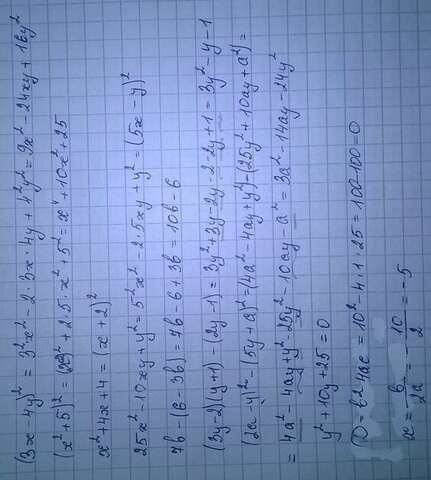 (3x-4y)² = 3²x² - 2·3x·4y + 4²y² = 9x² - 24xy + 16y²
(x²+5)² = (x²)² + 2·5·x² + 5² = x⁴ + 10x² + 25
x² + 4x + 4 = (x+2)²
25x² - 10xy + y² = 5²x² - 2·5xy + y² = (5x - y)²
7b - (6 - 3b) = 7b - 6 + 3b = 10b - 6
(3y-2)(y+1) - (2y-1) = 3y² + 3y - 2y - 2 - 2y + 1 = 3y² - y - 1
(2a-y)² - (5y+a)² = (4a² - 4ay + y²) - (25y² + 10ay + a²) =
= 4a² - 4ay + y² - 25y² - 10ay - a² = 3a² - 14ay - 24y²
y² + 10y + 25 = 0
D = b² - 4ac = 10² - 4·1·25 = 100 - 100 = 0
x = b/2a = - 10/2 = -5